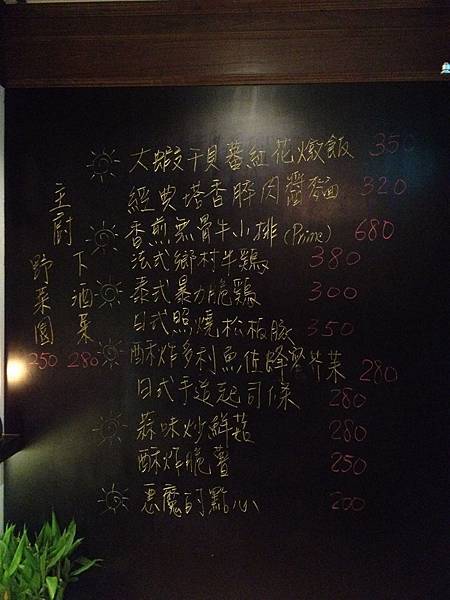 大蝦干貝番紅花燉飯 350
經典塔香豚肉醬麵 320
香煎無骨牛小排(Prime) 680
法式鄉村半鷄 380
泰式暴力脆鷄 300
日式照燒松板豚 350
酥炸多利魚佐蜂蜜芥茉 280
日式手造起司條 280
蒜味炒鮮菇 280
酥炸脆薯 250
惡魔的點心 200
主廚
下酒菜 280
野菜園 250